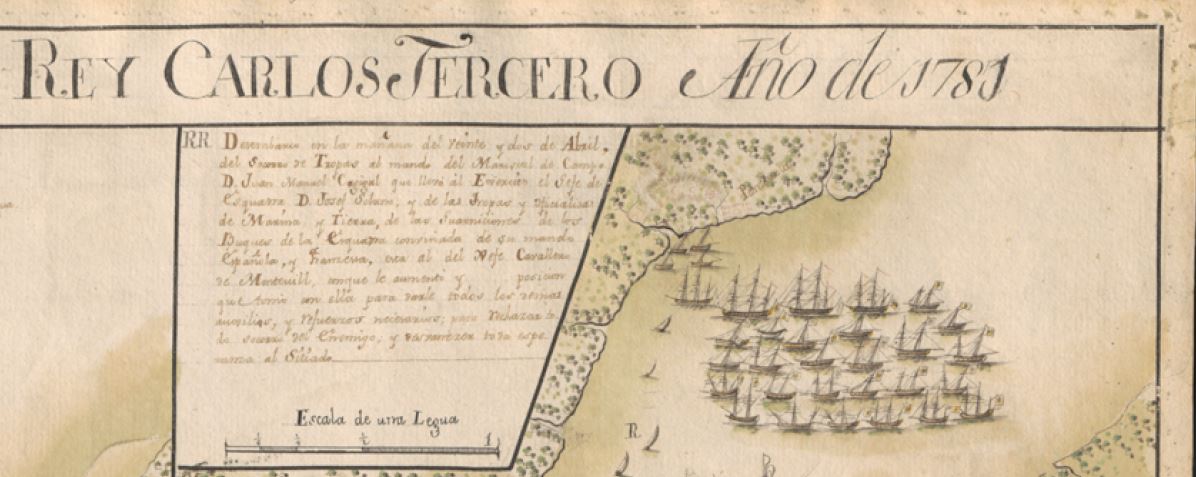 REY CARLOS TERCERO Año de 1781
RR Desembarco en la mañana del veinte y dos de Abril,
del Socorro de Tropas al mando del Mariscal de Campo
D. Juan Manuel Cagigal que llevó al Exercito el Gefe de
Esquadra D. Josef Solano; y de las Tropas y oficialidad
de Marina, y Tierra, de las Guarniciones de los
Buques de la Esquadra convinada de su mando
Española, y francesa, era al del Gefe Cavallero
de Montevill, conque le aumentó y posicion
que tomó con ella para darle todos los demas
auxilios, y refuerzos necesarios; para rechazar to-
do socorro del Enemigo; y toda espe-
ranza al Sitiado
Escala de una Legua
1
R